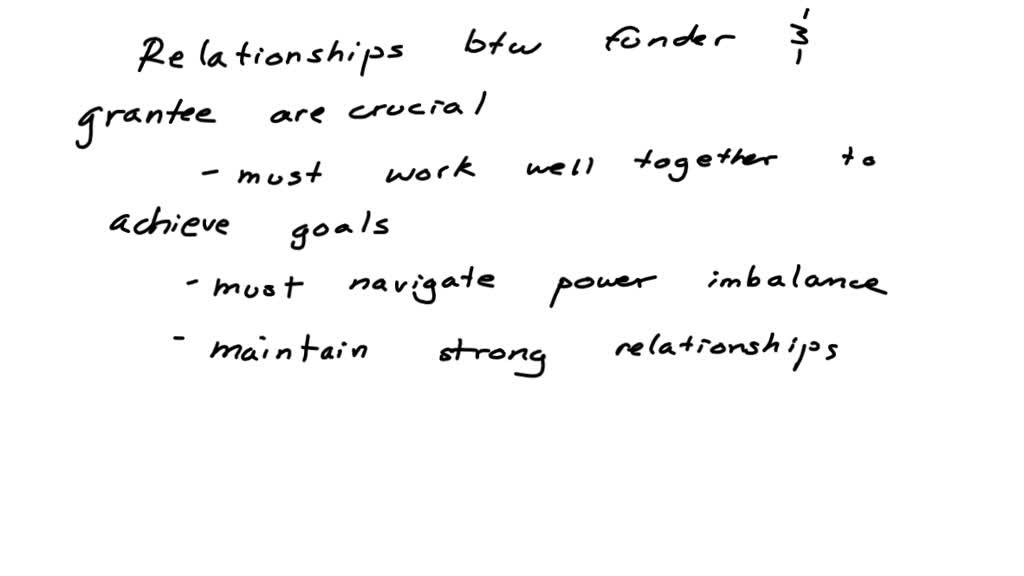 Relationships btw funder &
grantee are crucial
- must work well together to
achieve goals
- must navigate power imbalance
- maintain strong relationships